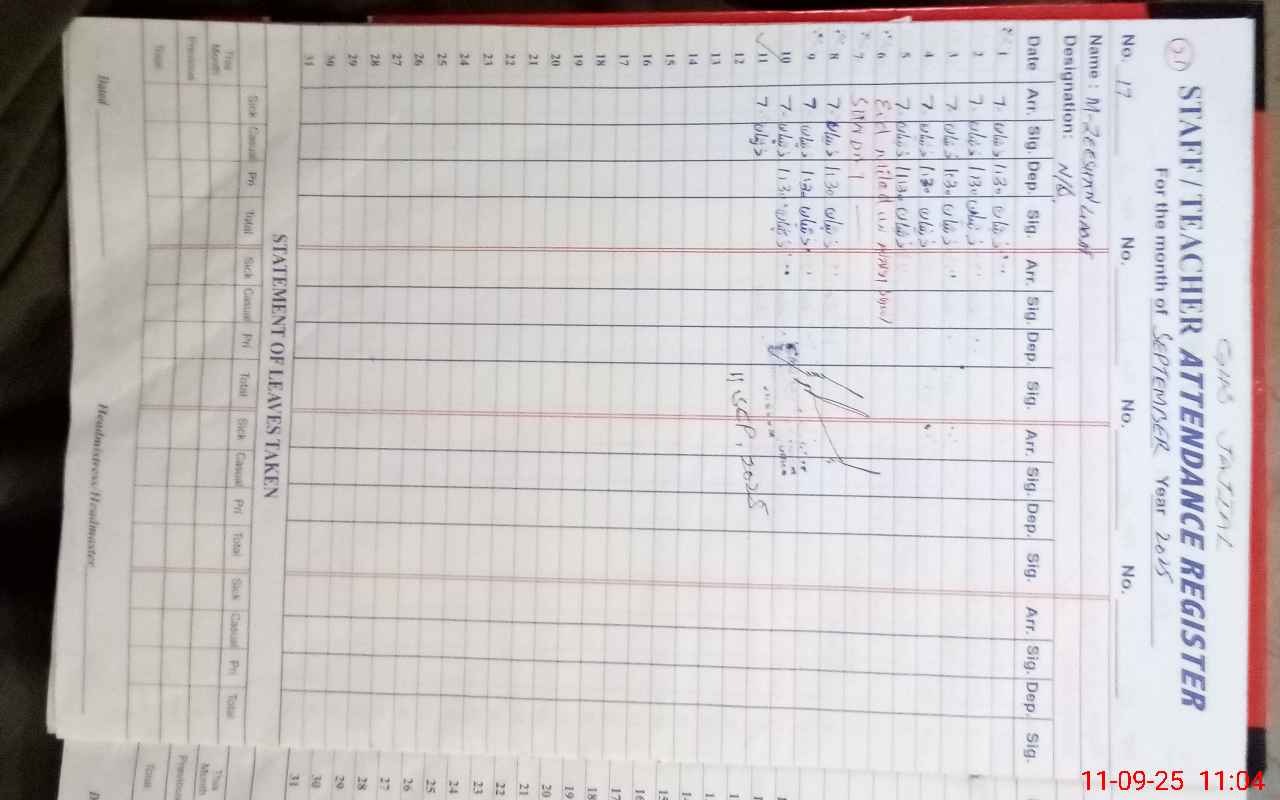 STAFF / TEACHER ATTENDANCE REGISTER
For the month of SEPTEMBER Year 2025
No. 17 No. No. No.
Name :
Designation:
Date Arr. Sig Dep. Sig. Arr. Sig. Dep. Sig. Arr. Sig. Dep. Sig. Arr. Sig. Dep. Sig.
1 7. ذیشان 1:30 ذیشان
2 7. ذیشان 1:30 ذیشان
3 7. ذیشان 1:30 ذیشان
4 7. ذیشان 1:30 ذیشان
5 7. ذیشان 1:30 ذیشان
6 Eid milad un
7
8 7. ذیشان 1:30 ذیشان
9 7 ذیشان 1:30 ذیشان
10 7. ذیشان 1:30 ذیشان
11 7. ذیشان
12
13
14
15
16
17
18
19
20
21
22
23
24
25
26
27
28
29
30
31
11 SEP, 2025
STATEMENT OF LEAVES TAKEN
Sick Casual Pri Total Sick Casual Pri Total Sick Casual Pri Total Sick Casual Pri Total
This Month
Previous
Total
Dated Headmistress/Headmaster
11-09-25 11:04